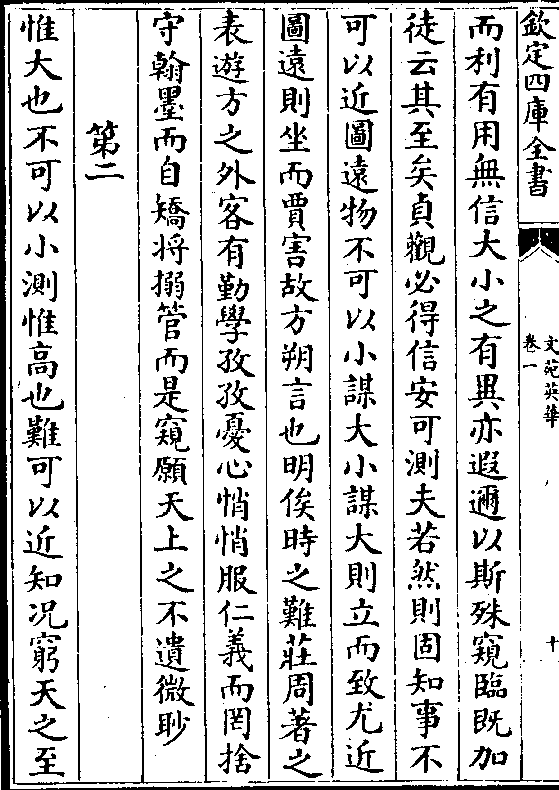 欽定四庫全書
文苑英華
卷一
十
而利有用無信大小之有異亦遐邇以斯殊窺臨既加
徒云其至矣貞觀必得信安可測夫若然則固知事不
可以近圖遠物不可以小謀大小謀大則立而致尤近
圖遠則坐而賈害故方朔言也明俟時之難莊周著之
表遊方之外客有勤學孜孜憂心悄悄服仁義而罔捨
守翰墨而自矯将搦管而是窺願天上之不遺微眇
第二
惟大也不可以小測惟高也難可以近知况窮天之至